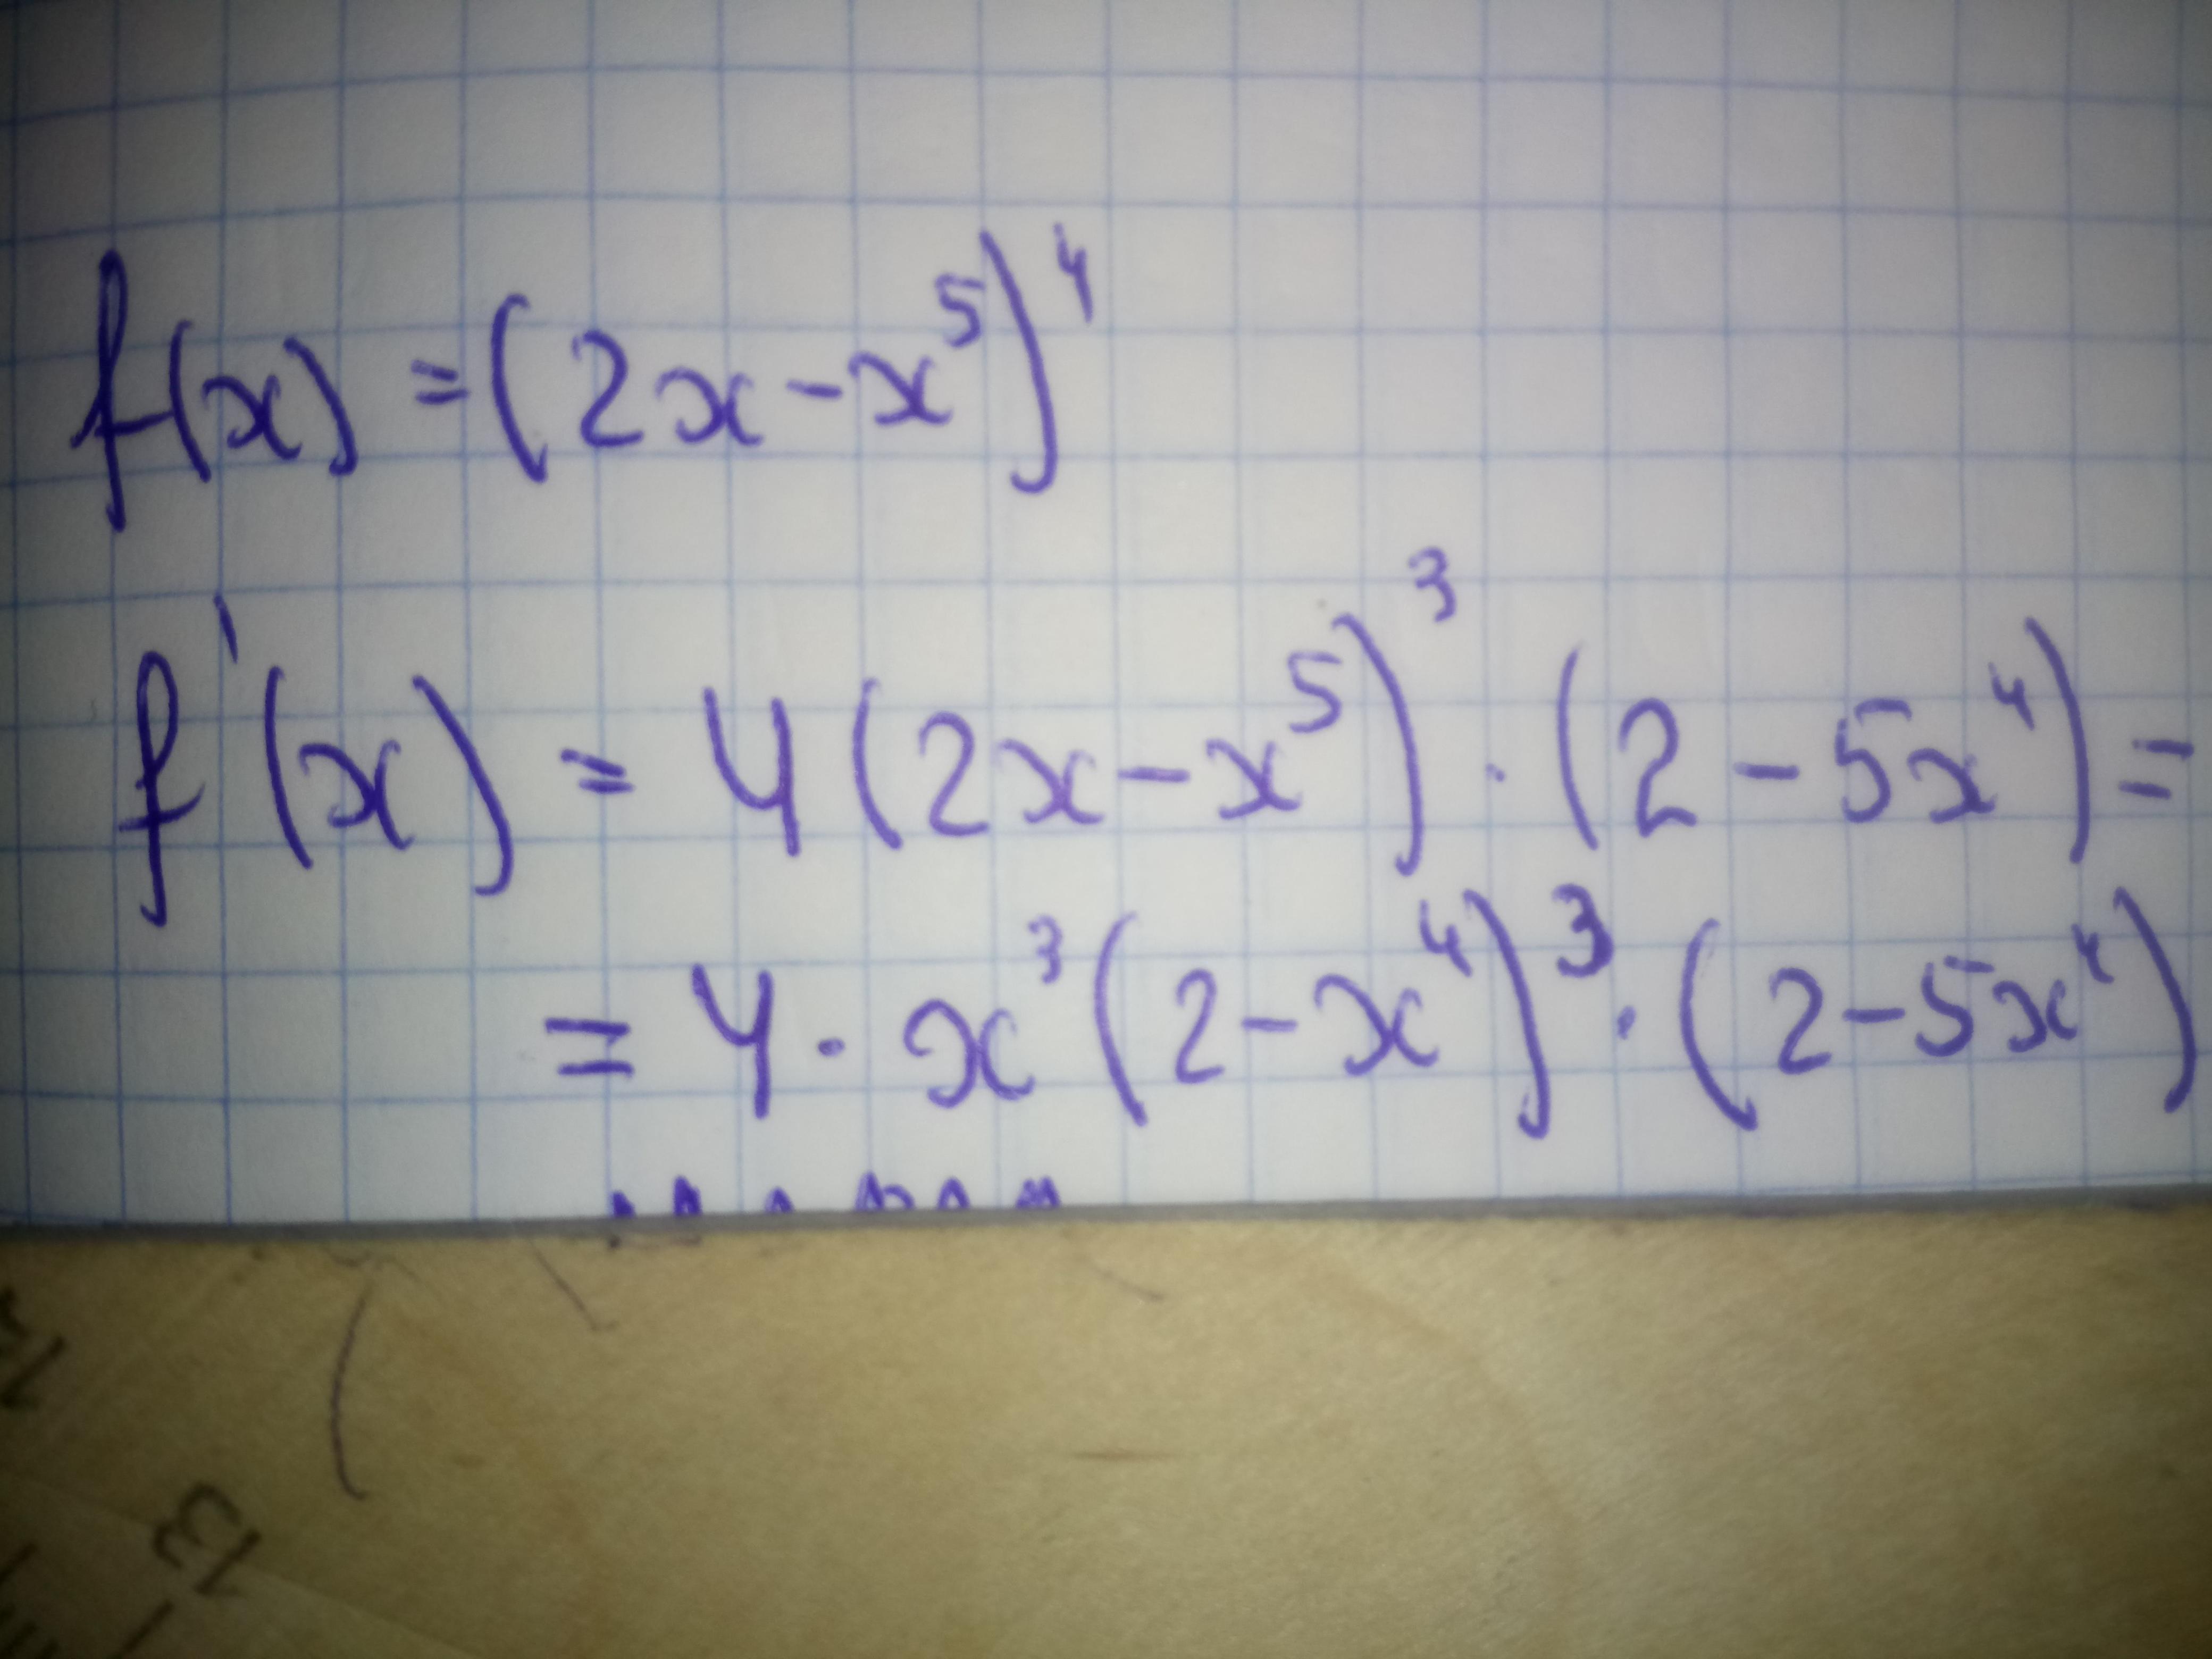 f(x) = (2x - x⁵)⁴
f'(x) = 4(2x - x⁵)³ · (2 - 5x⁴) =
= 4 · x³(2 - x⁴)³ · (2 - 5x⁴)